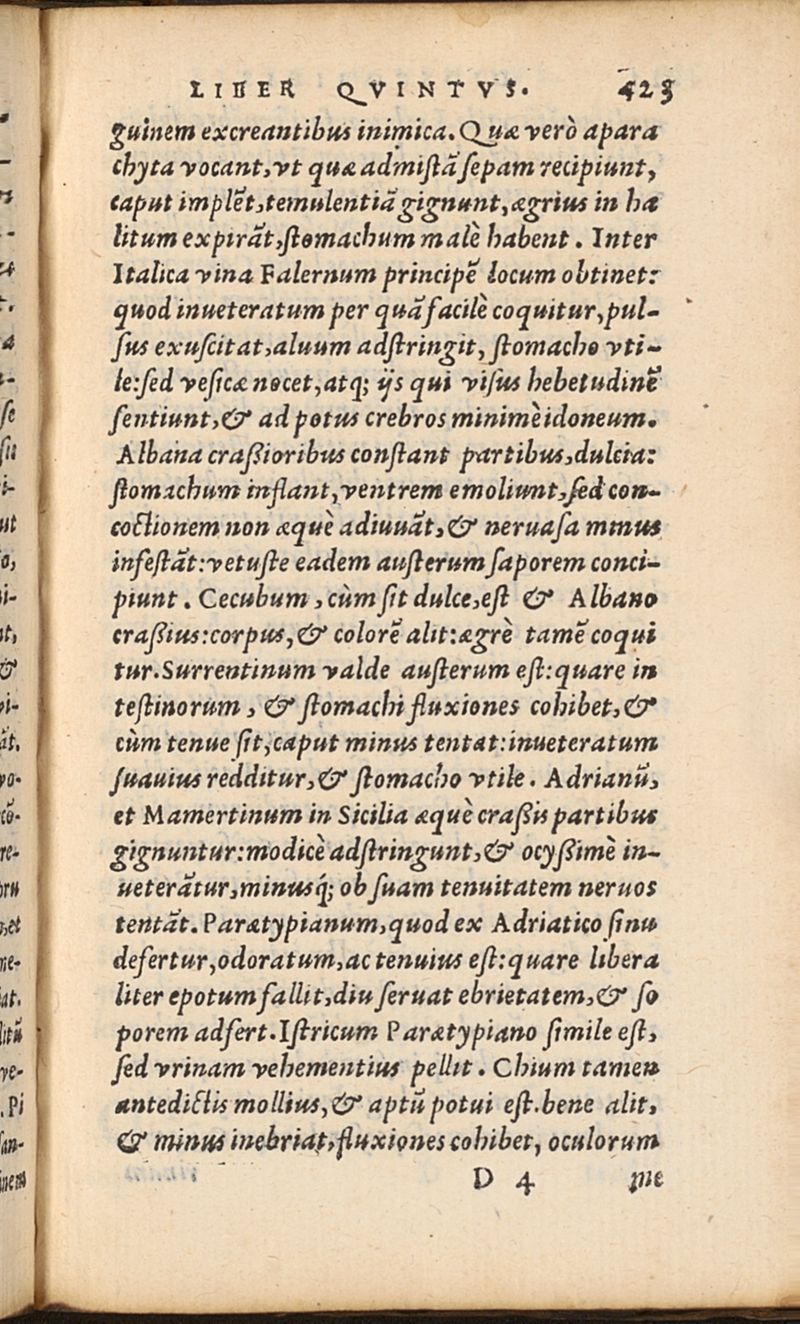 LIBER QVINTVS. 423
guinem excreantibus inimica. Quæ verò apara
chyta vocant, vt quæ admistã sepam recipiunt,
caput implẽt, temulentiã gignunt, ægrius in ha
litum expirãt, stomachum malè habent. Inter
Italica vina Falernum principẽ locum obtinet:
quod inueteratum per quã facilè coquitur, pul-
sus exuscitat, aluum adstringit, stomacho vti-
le: sed vesicæ nocet, atq; ijs qui visus hebetudinẽ
sentiunt, & ad potus crebros minimè idoneum.
Albana craßioribus constant partibus, dulcia:
stomachum inflant, ventrem emoliunt, sed con-
coctionem non æquè adiuuãt, & neruasa minus
infestãt: vetuste eadem austerum saporem conci-
piunt. Cecubum, cùm sit dulce, est & Albano
craßius: corpus, & colorẽ alit: ægrè tamẽ coqui
tur. Surrentinum valde austerum est: quare in
testinorum, & stomachi fluxiones cohibet, &
cùm tenue sit, caput minus tentat: inueteratum
suauius redditur, & stomacho vtile. Adrianũ,
et Mamertinum in Sicilia æquè craßis partibus
gignuntur: modicè adstringunt, & ocyßimè in-
ueterãtur, minusq́; ob suam tenuitatem neruos
tentãt. Parætypianum, quod ex Adriatico sinu
defertur, odoratum, ac tenuius est: quare libera
liter epotum fallit, diu seruat ebrietatem, & so
porem adfert. Istricum Parætypiano simile est,
sed vrinam vehementius pellit. Chium tamen
antedictis mollius, & aptũ potui est. bene alit,
& minus inebriat, fluxiones cohibet, oculorum
D 4 me